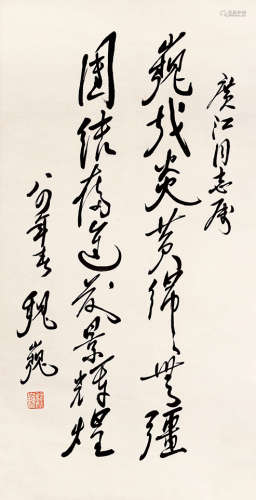 广江同志属
巍哉炎黄绵绵无疆
团结奋进发景辉煌
八四年春
魏巍